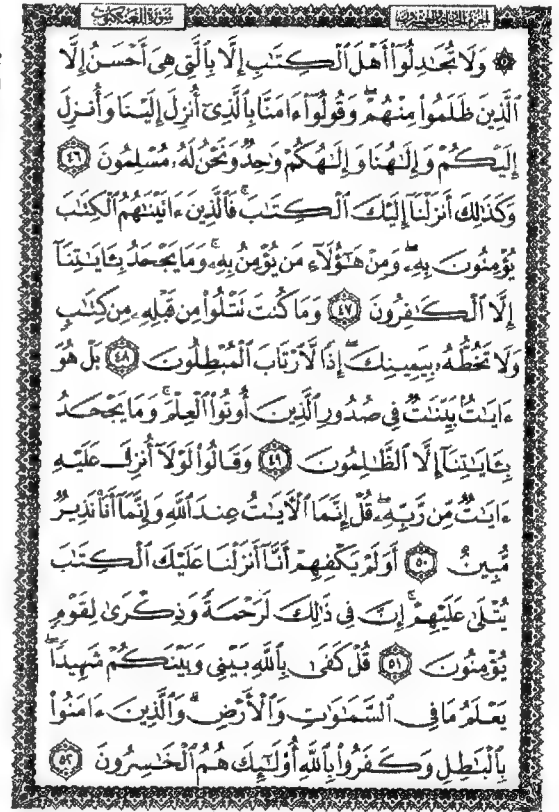 الجزء الحادي والعشرون
سورة العنكبوت
۞ وَلَا تُجَٰدِلُوٓا۟ أَهْلَ ٱلْكِتَٰبِ إِلَّا بِٱلَّتِى هِىَ أَحْسَنُ إِلَّا
ٱلَّذِينَ ظَلَمُوا۟ مِنْهُمْ ۖ وَقُولُوٓا۟ ءَامَنَّا بِٱلَّذِىٓ أُنزِلَ إِلَيْنَا وَأُنزِلَ
إِلَيْكُمْ وَإِلَٰهُنَا وَإِلَٰهُكُمْ وَٰحِدٌ وَنَحْنُ لَهُۥ مُسْلِمُونَ ٤٦
وَكَذَٰلِكَ أَنزَلْنَآ إِلَيْكَ ٱلْكِتَٰبَ ۚ فَٱلَّذِينَ ءَاتَيْنَٰهُمُ ٱلْكِتَٰبَ
يُؤْمِنُونَ بِهِۦ ۖ وَمِنْ هَٰٓؤُلَآءِ مَن يُؤْمِنُ بِهِۦ ۚ وَمَا يَجْحَدُ بِـَٔايَٰتِنَآ
إِلَّا ٱلْكَٰفِرُونَ ٤٧ وَمَا كُنتَ تَتْلُوا۟ مِن قَبْلِهِۦ مِن كِتَٰبٍ
وَلَا تَخُطُّهُۥ بِيَمِينِكَ ۖ إِذًا لَّٱرْتَابَ ٱلْمُبْطِلُونَ ٤٨ بَلْ هُوَ
ءَايَٰتٌۢ بَيِّنَٰتٌ فِى صُدُورِ ٱلَّذِينَ أُوتُوا۟ ٱلْعِلْمَ ۚ وَمَا يَجْحَدُ
بِـَٔايَٰتِنَآ إِلَّا ٱلظَّٰلِمُونَ ٤٩ وَقَالُوا۟ لَوْلَآ أُنزِلَ عَلَيْهِ
ءَايَٰتٌ مِّن رَّبِّهِۦ ۖ قُلْ إِنَّمَا ٱلْءَايَٰتُ عِندَ ٱللَّهِ وَإِنَّمَآ أَنَا۠ نَذِيرٌ
مُّبِينٌ ٥٠ أَوَلَمْ يَكْفِهِمْ أَنَّآ أَنزَلْنَا عَلَيْكَ ٱلْكِتَٰبَ
يُتْلَىٰ عَلَيْهِمْ ۚ إِنَّ فِى ذَٰلِكَ لَرَحْمَةً وَذِكْرَىٰ لِقَوْمٍ
يُؤْمِنُونَ ٥١ قُلْ كَفَىٰ بِٱللَّهِ بَيْنِى وَبَيْنَكُمْ شَهِيدًا ۖ
يَعْلَمُ مَا فِى ٱلسَّمَٰوَٰتِ وَٱلْأَرْضِ ۗ وَٱلَّذِينَ ءَامَنُوا۟
بِٱلْبَٰطِلِ وَكَفَرُوا۟ بِٱللَّهِ أُو۟لَٰٓئِكَ هُمُ ٱلْخَٰسِرُونَ ٥٢